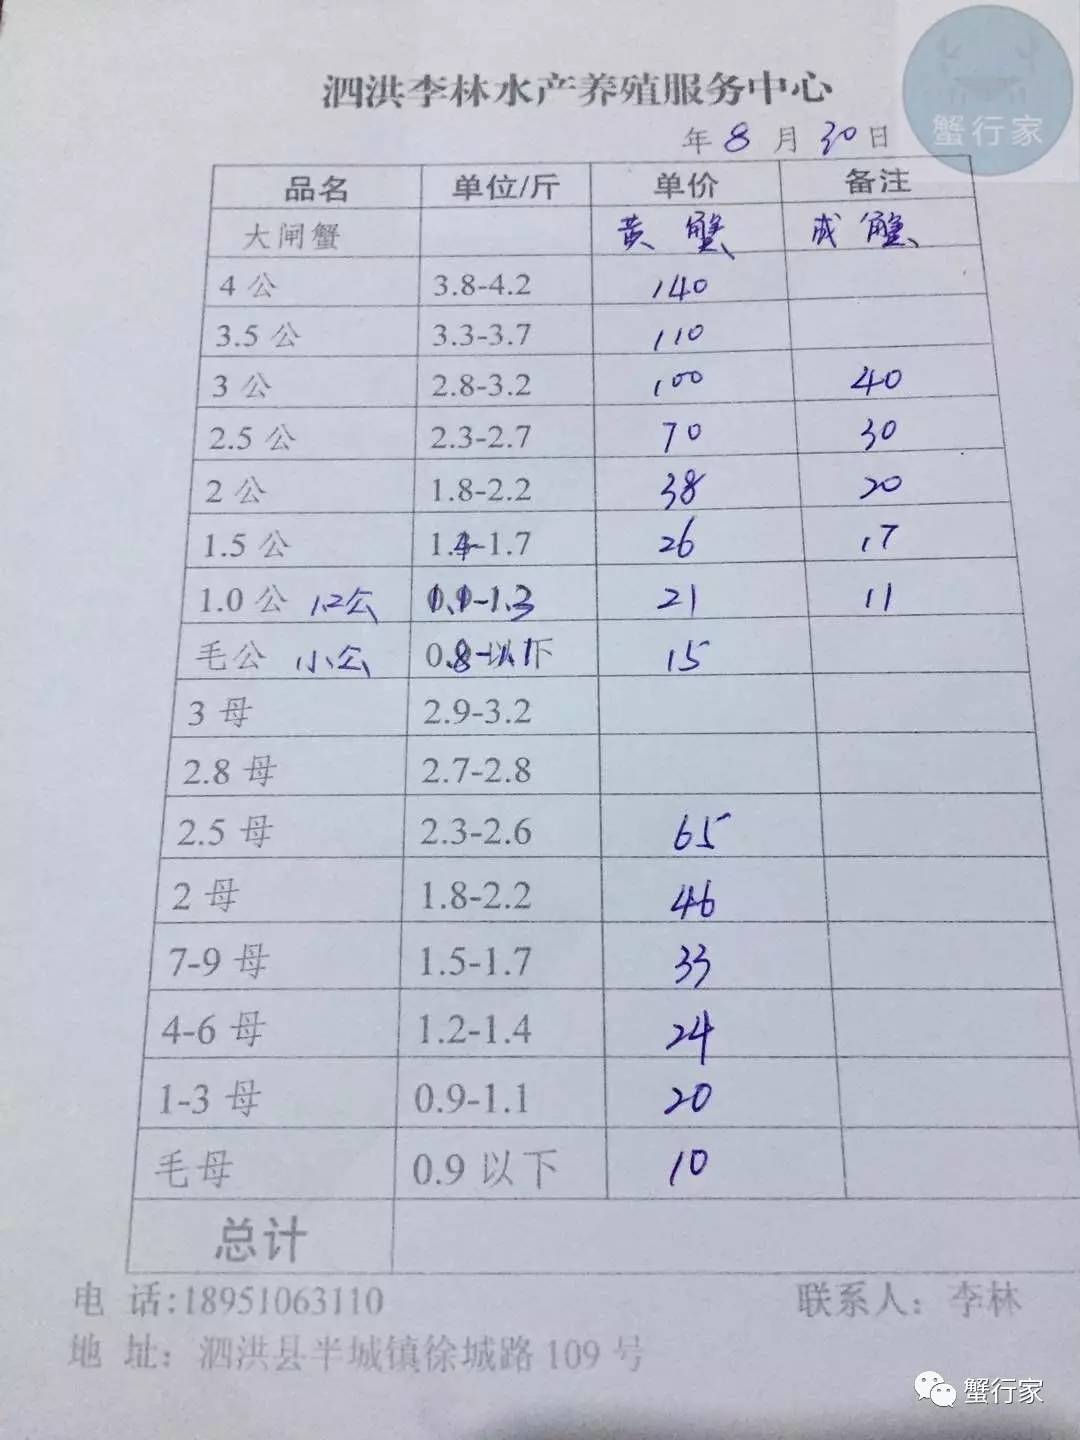 蟹行家
泗洪李林水产养殖服务中心
年 8 月 30 日
品名 单位/斤 单价 备注
大闸蟹 黄蟹 成蟹
4 公 3.8-4.2 140
3.5 公 3.3-3.7 110
3 公 2.8-3.2 100 40
2.5 公 2.3-2.7 70 30
2 公 1.8-2.2 38 20
1.5 公 1.4-1.7 26 17
1.0 公 1.2公 1.3 21 11
毛公 小公 0.8-1.1 15
3 母 2.9-3.2
2.8 母 2.7-2.8
2.5 母 2.3-2.6 65
2 母 1.8-2.2 46
7-9 母 1.5-1.7 33
4-6 母 1.2-1.4 24
1-3 母 0.9-1.1 20
毛母 0.9 以下 10
总计
电 话:18951063110 联系人：李林
地 址：泗洪县半城镇徐城路 109 号
蟹行家